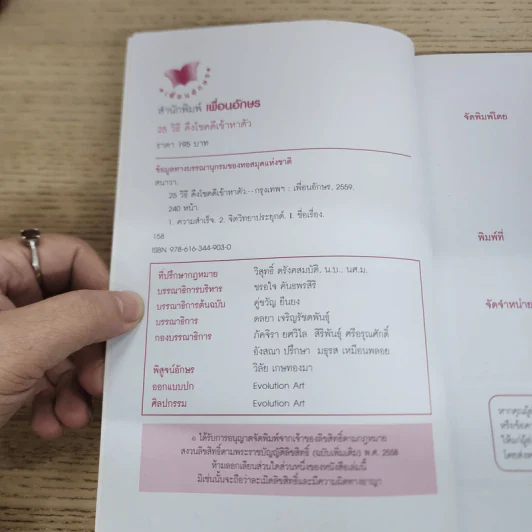 เพื่อนอักษร
สำนักพิมพ์ เพื่อนอักษร
35 วิธี ดึงโชคดีเข้าหาตัว
ราคา 195 บาท
ข้อมูลทางบรรณานุกรมของหอสมุดแห่งชาติ
ตนารา.
35 วิธี ดึงโชคดีเข้าหาตัว.--กรุงเทพฯ : เพื่อนอักษร, 2559.
240 หน้า.
1. ความสำเร็จ. 2. จิตวิทยาประยุกต์. I. ชื่อเรื่อง.
158
ISBN 978-616-344-903-0
ที่ปรึกษากฎหมาย วิสุทธิ์ ตรังคสมบัติ, น.บ., นศ.ม.
บรรณาธิการบริหาร ชรอใจ คันธพรสิริ
บรรณาธิการต้นฉบับ คู่ขวัญ ยืนยง
บรรณาธิการ ดลยา เจริญรัชตพันธุ์
กองบรรณาธิการ ภัคจิรา ยศวิไล สิริพันธุ์ ศรีอรุณศักดิ์
อังสณา ปรึกษา มธุรส เหมือนพลอย
พิสูจน์อักษร วิลัย เกษทองมา
ออกแบบปก Evolution Art
ศิลปกรรม Evolution Art
ได้รับการอนุญาตจัดพิมพ์จากเจ้าของลิขสิทธิ์ตามกฎหมาย
สงวนลิขสิทธิ์ตามพระราชบัญญัติลิขสิทธิ์ (ฉบับเพิ่มเติม) พ.ศ. 2558
ห้ามลอกเลียนส่วนใดส่วนหนึ่งของหนังสือเล่มนี้
มิเช่นนั้นจะถือว่าละเมิดลิขสิทธิ์และมีความผิดทางอาญา
จัดพิมพ์โดย
พิมพ์ที่
จัดจำหน่าย
หากคุณผู้